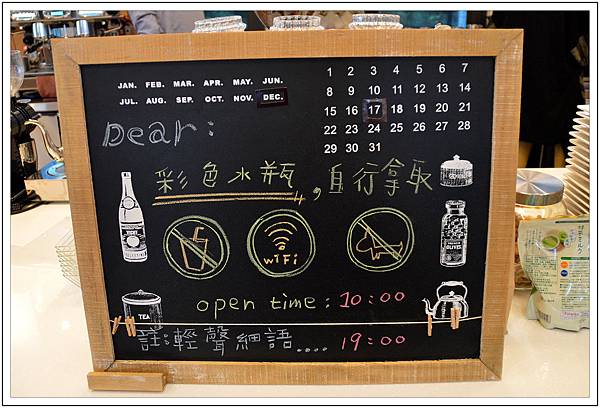 JAN. FEB. MAR. APR. MAY. JUN.
JUL. AUG. SEP. OCT. NOV. DEC.
1 2 3 4 5 6 7
8 9 10 11 12 13 14
15 16 17 18 19 20 21
22 23 24 25 26 27 28
29 30 31
Dear:
彩色水瓶,自行拿取
WiFi
OLIVES
open time: 10:00
TEA
註:輕聲細語.... 19:00